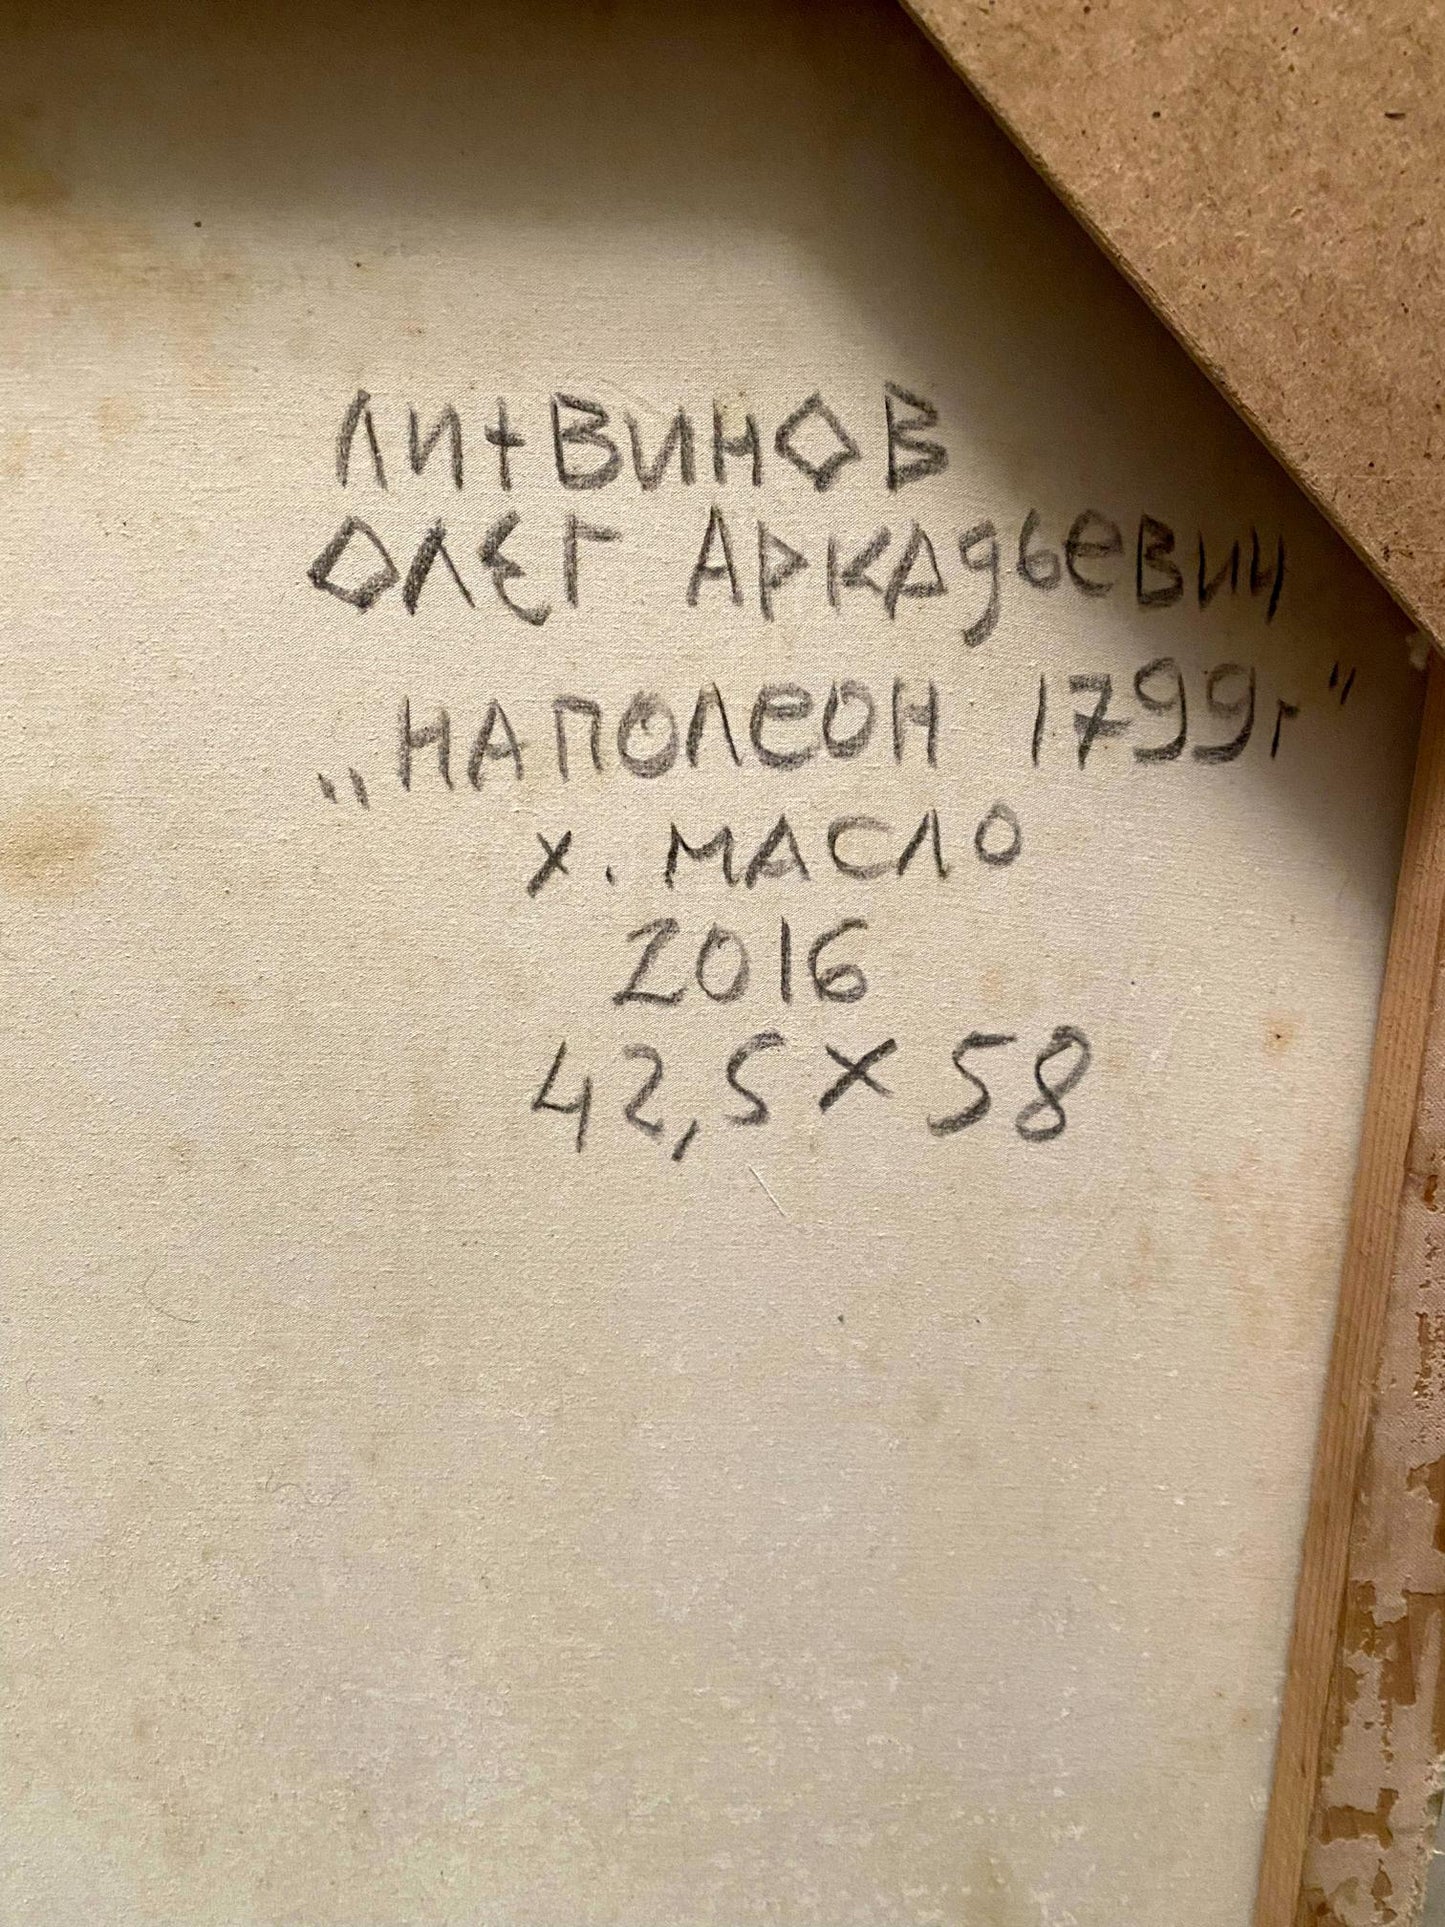 ЛИТВИНОВ
ОЛЕГ АРКАДЬЕВИЧ
„НАПОЛЕОН 1799г"
х. МАСЛО
2016
42,5 × 58